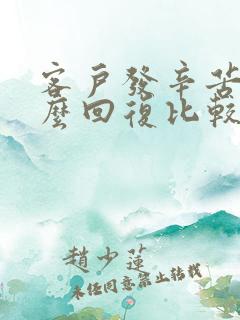 客戶發辛苦
麼回復比較
趙少蓮
未任同意禁止转载